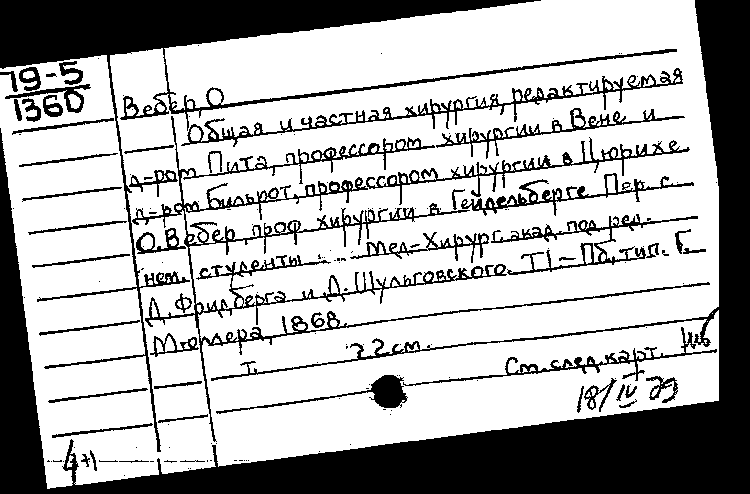 19-5
1360
Вебер, О
Общая и частная хирургия, редактируемая
д-ром Пита, профессором хирургии в Вене и
д-ром Бильрот, профессором хирургии в Цюрихе
О. Вебер, проф. хирургии в Гейдельберге. Пер. с
нем. студенты Мед-Хирург. акад. под ред.
Д. Фридберга и Д. Шульговского. Т I – Пб, тип. Г.
Мюллера, 1868.
т. 22 см.
См. след. карт.
18/IV 29
4+1